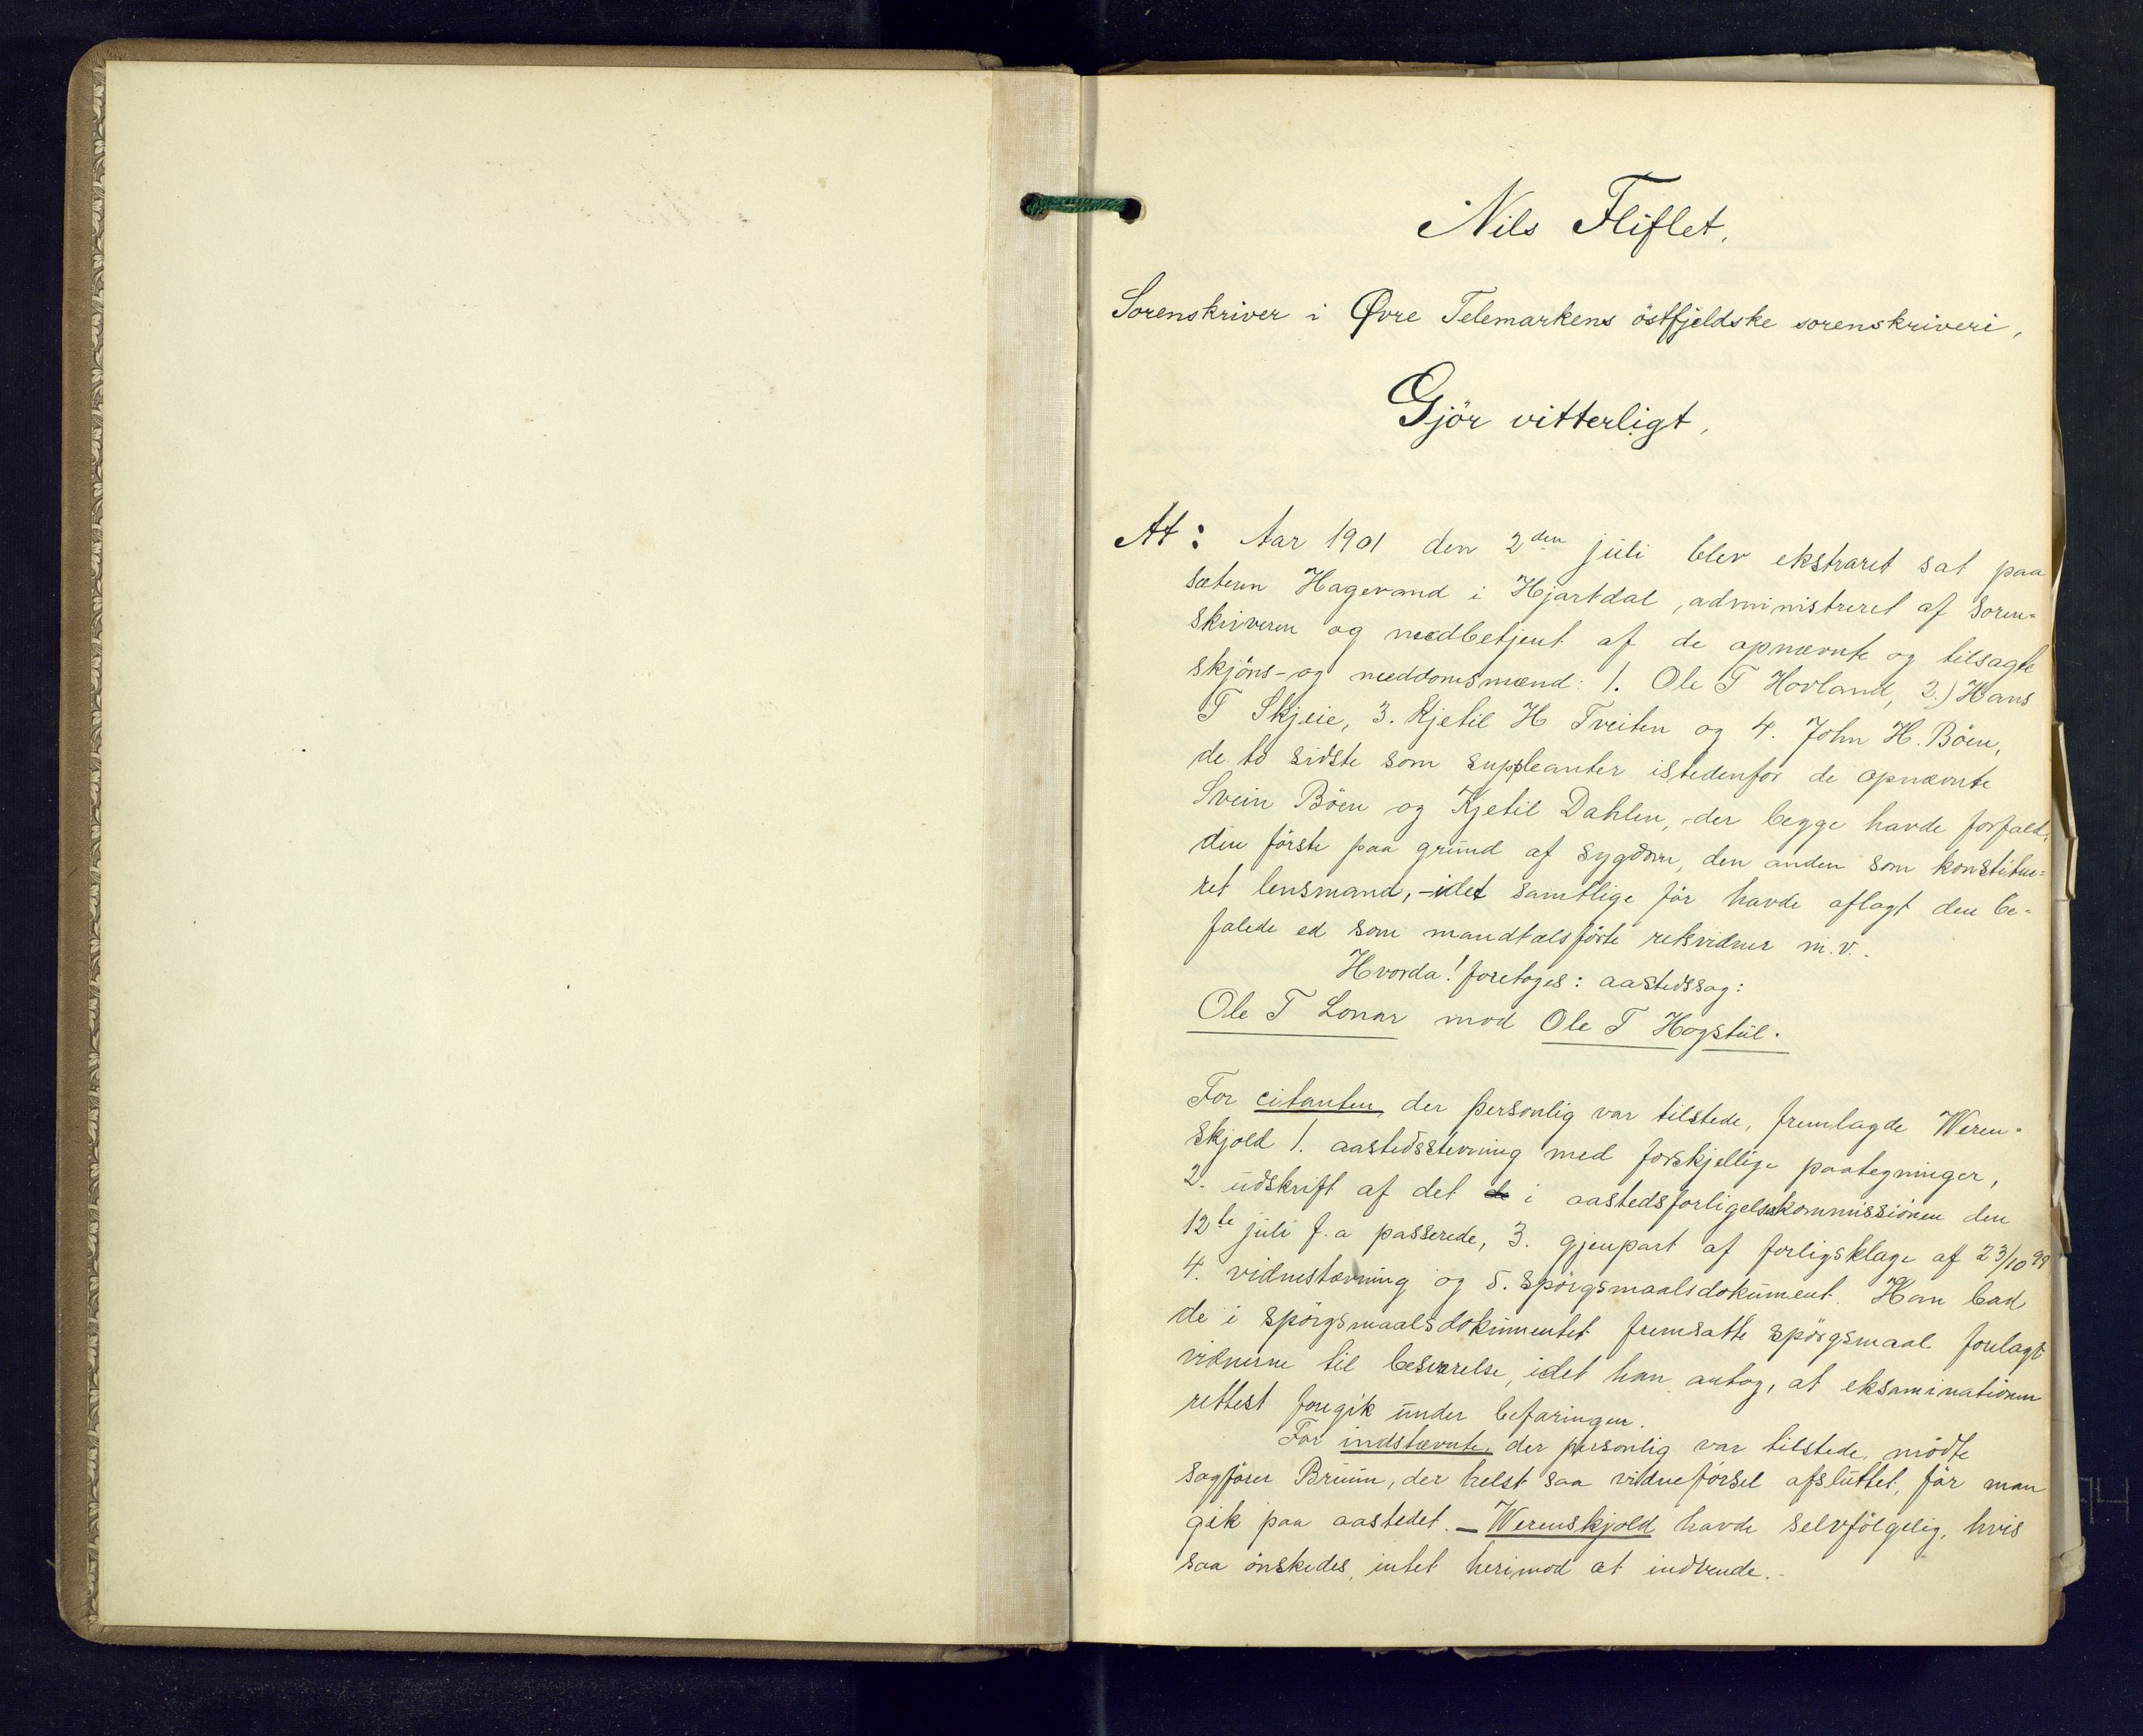 Nils Fliflet,
Sorenskriver i Øvre Telemarkens östfjeldske sorenskriveri,
Gjör vitterligt,
At: Aar 1901 den 2den juli blev ekstraret sat paa
sæteren Hagevand i Hjartdal, administreret af soren-
skriveren og medbetjent af de opnævnte og tilsagte
skjöns- og meddomsmænd: 1. Ole T Hovland, 2.) Hans
T Skjeie, 3. Kjetil H Tveiten og 4. John H. Böen,
de to sidste som suppleanter istedenfor de opnævnte
Svein Böen og Kjetil Dahlen, der begge havde forfald,
den förste paa grund af sygdom, den anden som konstitue-
ret lensmand, - idet samtlige för havde aflagt den be-
falede ed som mandtalsförte retsvidner m.v.
Hvorda! foretoges: aastedssag:
Ole T Lonar mod Ole T Hogstul.
For citanten, der personlig var tilstede, fremlagde Weren-
skjold 1. aastedsstevning med forskjellige paategninger,
2. udskrift af det i aastedsforligelseskommissionen den
12te juli f.a passerede, 3. gjenpart af forligsklage af 23/10 99
4. vidnestævning og 5. spörgsmaalsdokument. Han bad
de i spörgsmaalsdokumentet fremsatte spörgsmaal forelagt
vidnerne til besvarelse, idet han antog, at eksaminationen
rettest foregik under befaringen.
For indstævnte, der personlig var tilstede, mödte
sagförer Bruun, der helst saa vidneförsel afsluttet, för man
gik paa aastedet. - Werenskjold havde selvfölgelig, hvis
saa önskedes, intet herimod at indvende. -